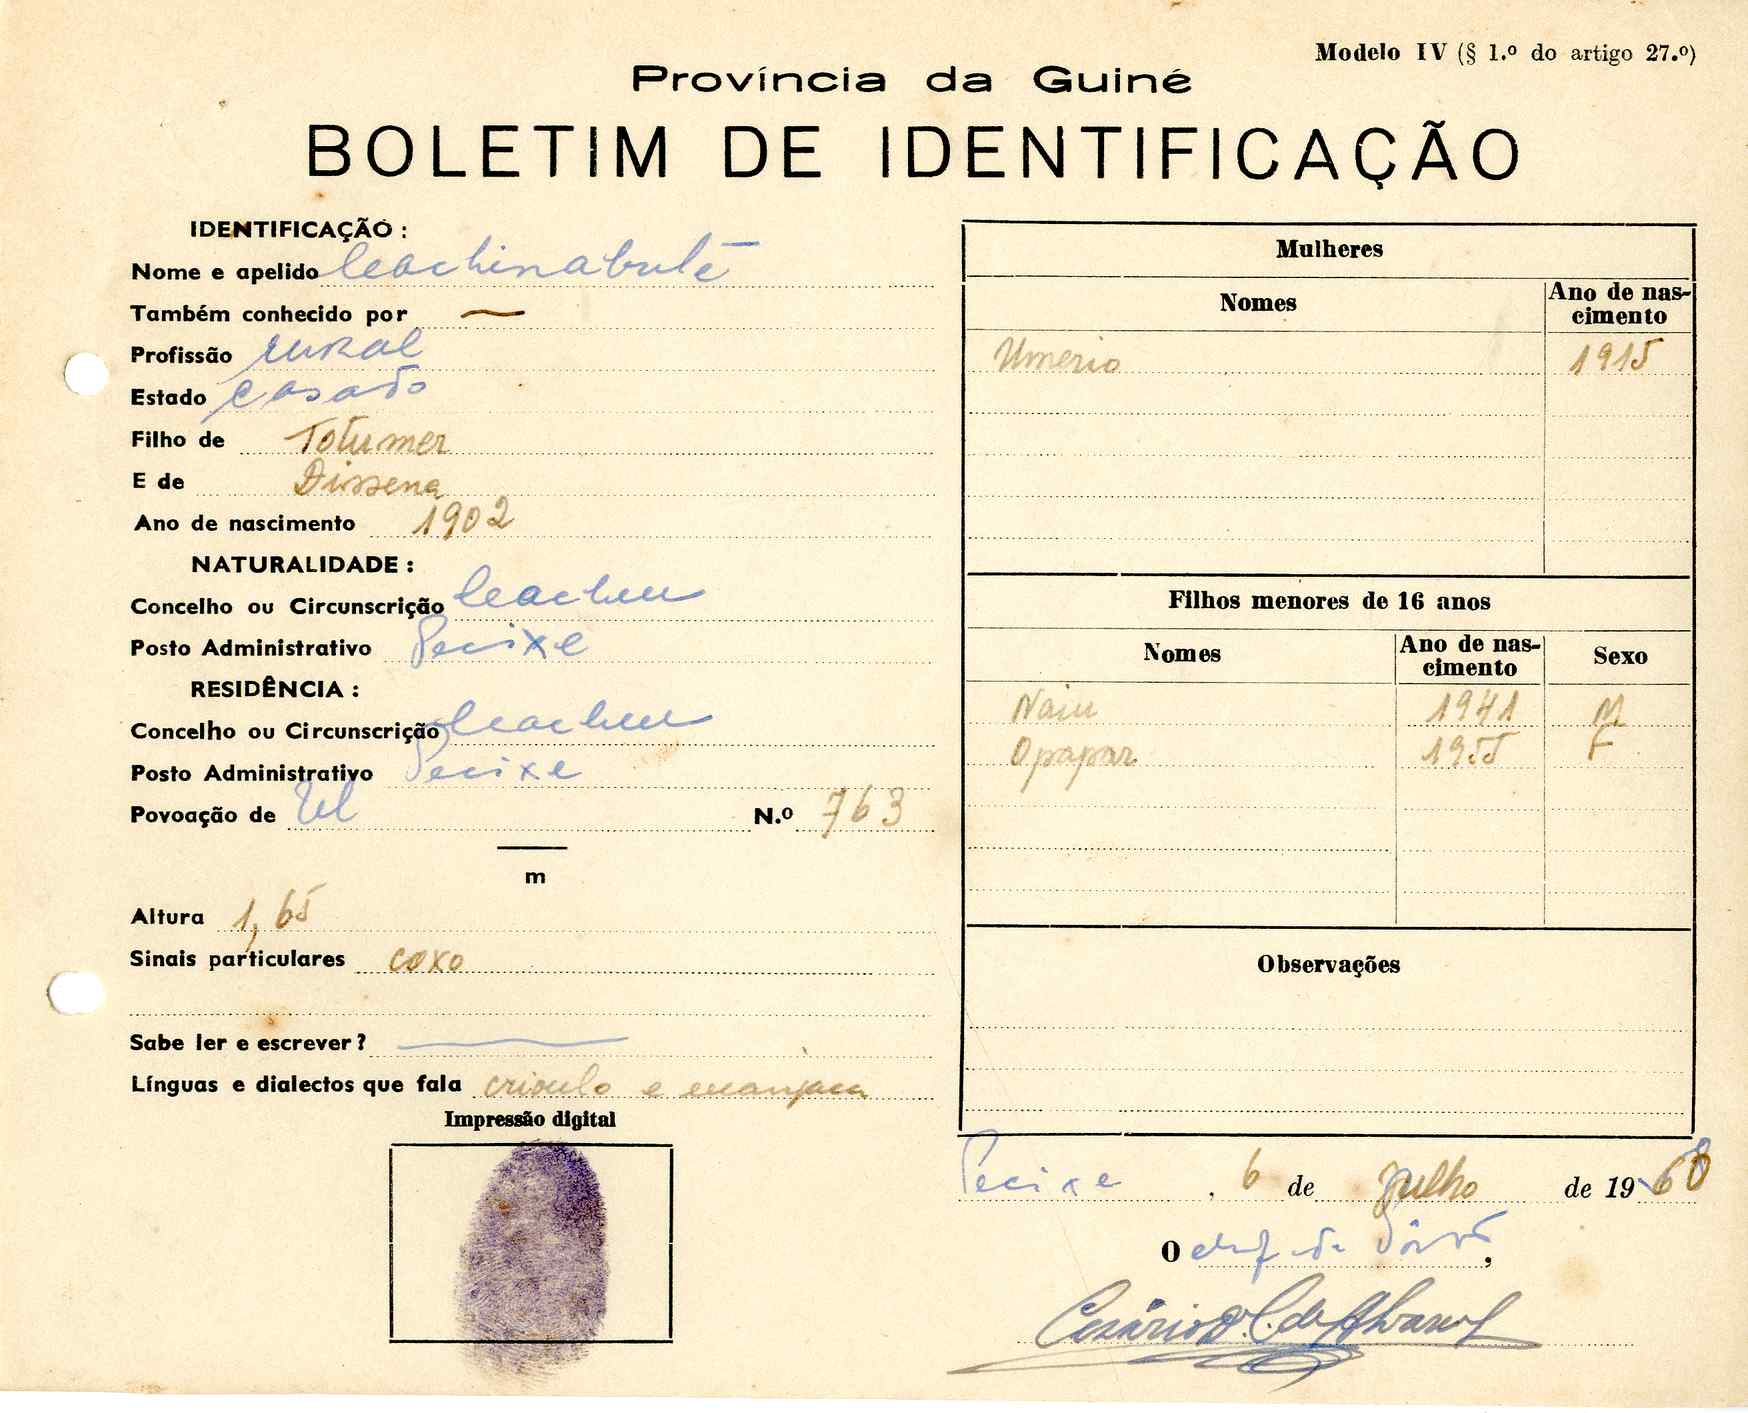 Modelo IV (§ 1.º do artigo 27.º)
Província da Guiné
BOLETIM DE IDENTIFICAÇÃO
IDENTIFICAÇÃO :
Nome e apelido
Também conhecido por —
Profissão rural
Estado casado
Filho de Totumer
E de Dissena
Ano de nascimento 1902
NATURALIDADE :
Concelho ou Circunscrição Cacheu
Posto Administrativo Pecixe
RESIDÊNCIA :
Concelho ou Circunscrição Cacheu
Posto Administrativo Pecixe
Povoação de N.º 763
m
Altura 1,65
Sinais particulares coxo
Sabe ler e escrever ? —
Línguas e dialectos que fala crioulo e manjaca
Impressão digital
Mulheres
Nomes Ano de nas-
cimento
Umerio 1915
Filhos menores de 16 anos
Nomes Ano de nas-
cimento Sexo
Naiu 1941 M
Opapar 1955 F
Observações
Pecixe, 6 de Julho de 1968
O chefe de Posto,